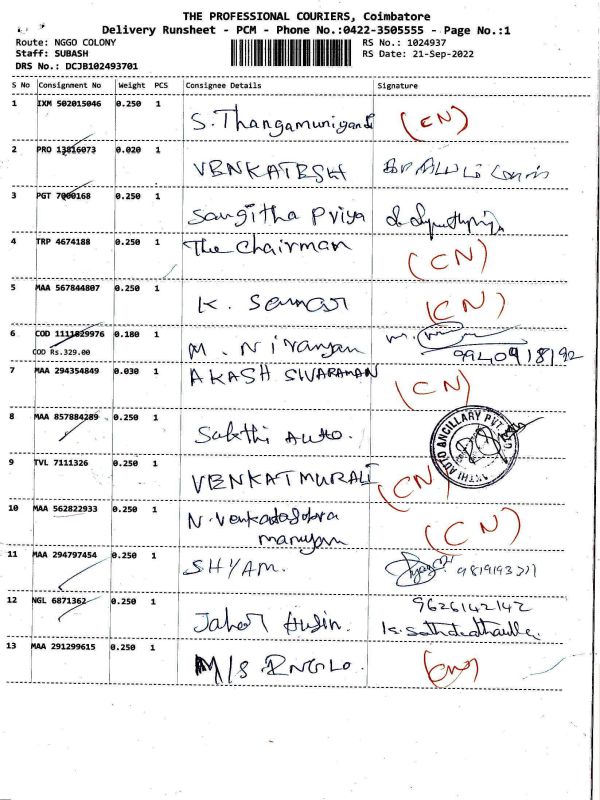 THE PROFESSIONAL COURIERS, Coimbatore
Delivery Runsheet - PCM - Phone No.:0422-3505555 - Page No.:1
Route: NGGO COLONY RS No.: 1024937
Staff: SUBASH RS Date: 21-Sep-2022
DRS No.: DCJB102493701
S No Consignment No Weight PCS Consignee Details Signature
1 IXM 502015046 0.250 1 S. Thangamuniyandi (CN)
2 PRO 13816073 0.020 1 VENKATESH
3 PGT 7000168 0.250 1 Sangitha Priya
4 TRP 4674188 0.250 1 The Chairman (CN)
5 MAA 567844807 0.250 1 K. (CN)
6 COD 1111829976 0.180 1 M. Niranjan M.
COD Rs.329.00 9940918192
7 MAA 294354849 0.030 1 AKASH SWARAMAN (CN)
8 MAA 857884289 0.250 1 Sakthi Auto. AUTO ANCILLARY PVT. LTD
9 TVL 7111326 0.250 1 VENKATMURALI (CN)
10 MAA 562822933 0.250 1 N. (CN)
11 MAA 294797454 0.250 1 SHYAM.
12 NGL 6871362 0.250 1 9626142142
Husin.
13 MAA 291299615 0.250 1 M/S